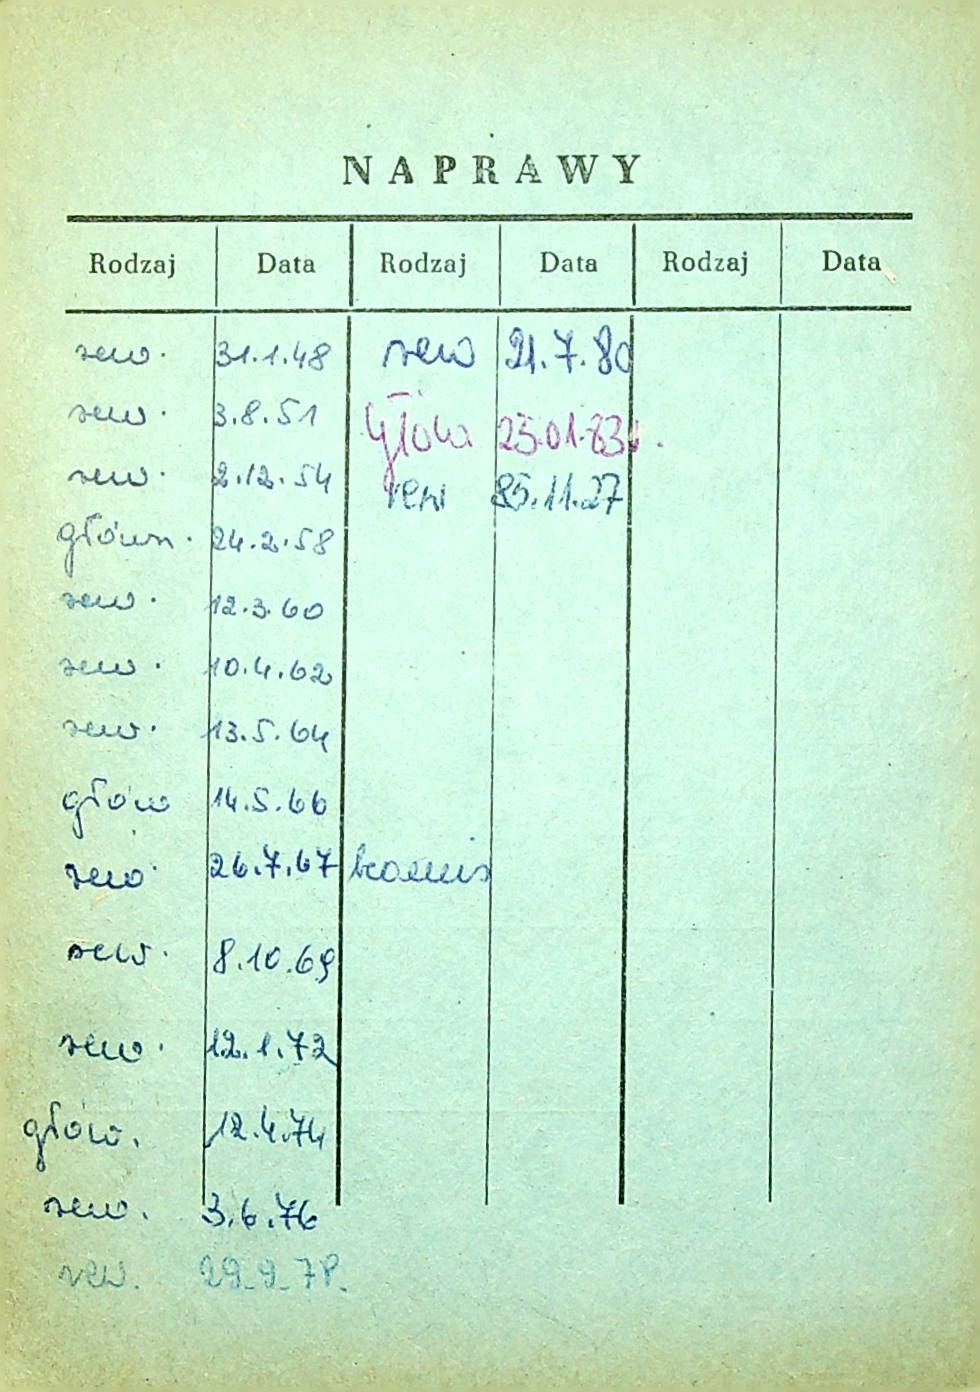 NAPRAWY
Rodzaj Data Rodzaj Data Rodzaj Data
rew. 31.1.48 rew 21.7.80
rew. 3.8.51 główn 25.01.83r.
rew. 2.12.54 rew 85.11.27
główn. 24.2.58
rew. 12.3.60
rew. 10.4.62
rew. 13.5.64
główn 14.5.66
rew. 26.7.67
rew. 8.10.69
rew. 12.1.72
głów. 12.4.74
rew. 3.6.76
rew. 29.9.78.